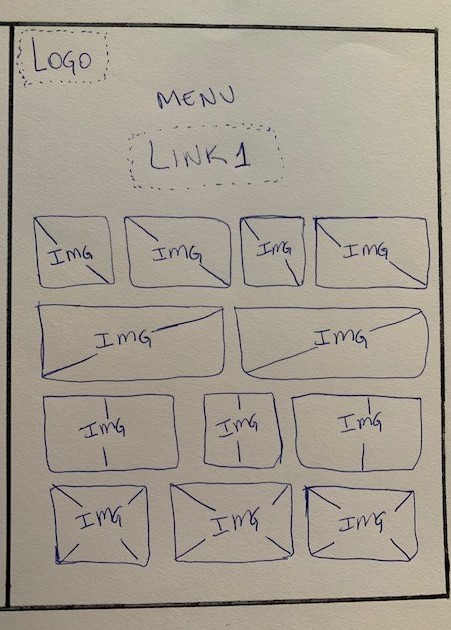 LOGO
MENU
LINK 1
IMG IMG IMG IMG
IMG IMG
IMG IMG IMG
IMG IMG IMG